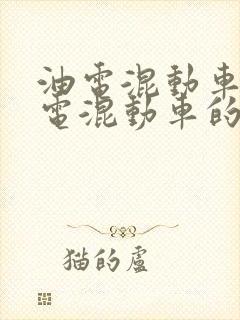 油電混動車
電混動車的
猫的盧